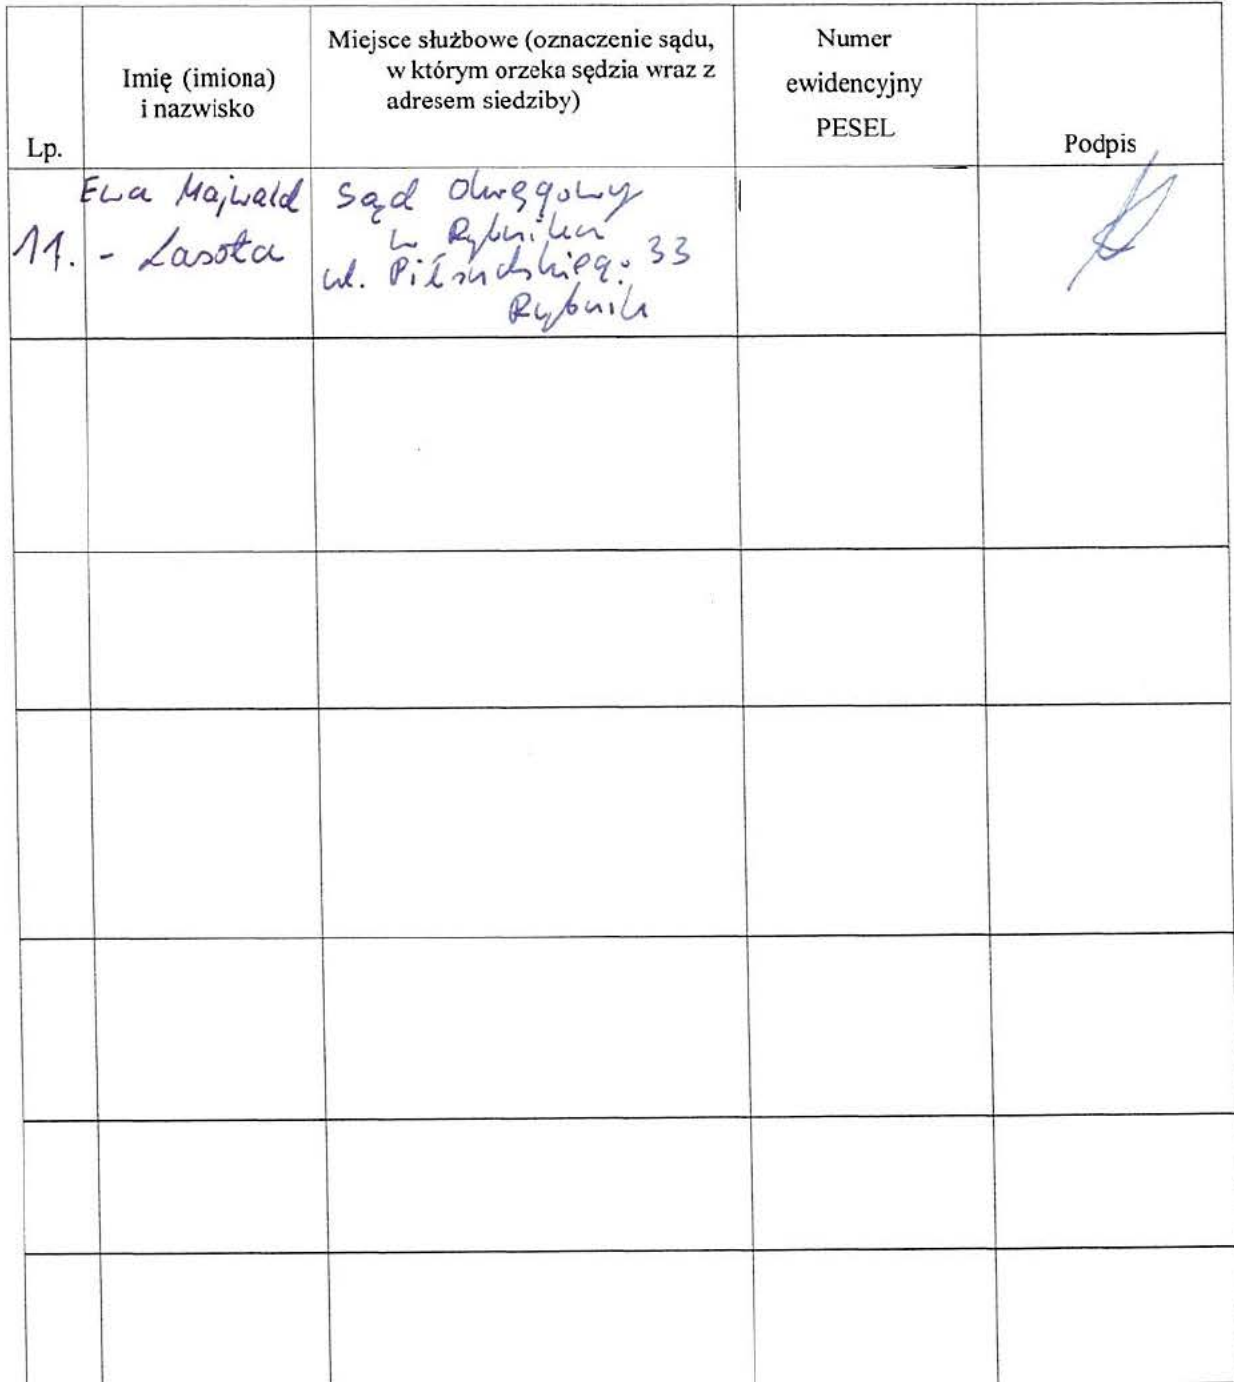 Lp.
Imię (imiona)
i nazwisko
Miejsce służbowe (oznaczenie sądu,
w którym orzeka sędzia wraz z
adresem siedziby)
Numer
ewidencyjny
PESEL
Podpis
11.
Ewa Majwald
- Lasota
Sąd Okręgowy
w Rybniku
ul. Piłsudskiego 33
Rybnik